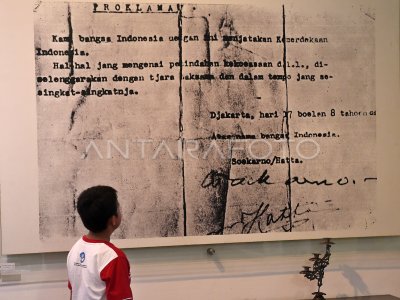 PROKLAMASI
Kami bangsa Indonesia dengan ini menjatakan Kemerdekaan
Indonesia.
Hal-hal jang mengenai pemindahan kekoeasaan d.l.l., di-
selenggarakan dengan tjara saksama dan dalam tempo jang se-
singkat-singkatnja.
Djakarta, hari 17 boelan 8 tahoen 05
Atas nama bangsa Indonesia.
Soekarno/Hatta.
ANTARAFOTO